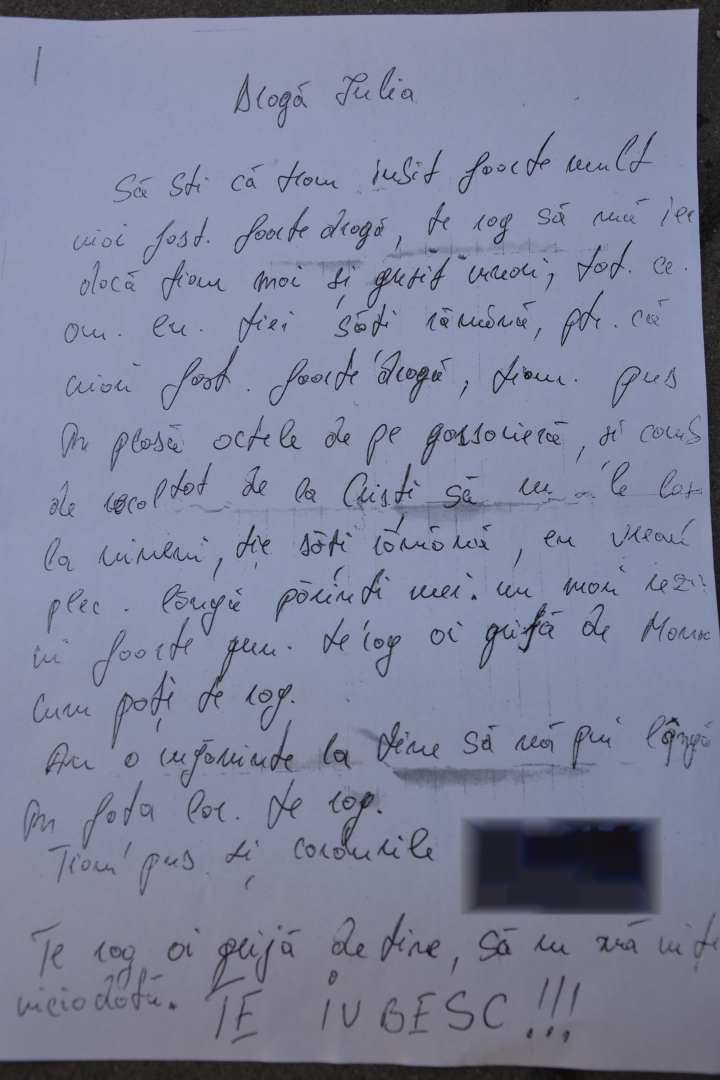 Dragă Iulia
Să sti că team iubit foarte mult
miai fost. foarte dragă, te rog să mă ier
dacă tiam mai și gresit vreun, tot. ce.
am. eu. tiei săti rămână, ptr. că
miai fost. foarte dragă, tiam. pus
În plasă actele de pe garsonieră, si
de de la Cristi să nu le las
la nimeni, tie săți rămână, eu vreau
plec. lângă părinti mei. nu mai
foarte greu. te rog ai grijă de Mama
cum poți te rog.
Am o rugăminte la tine să mă pui lângă
În fata lor. te rog.
Tiam pus și cardurile
Te rog ai grijă de tine, Să nu mă uiți
niciodată. TE IUBESC!!!